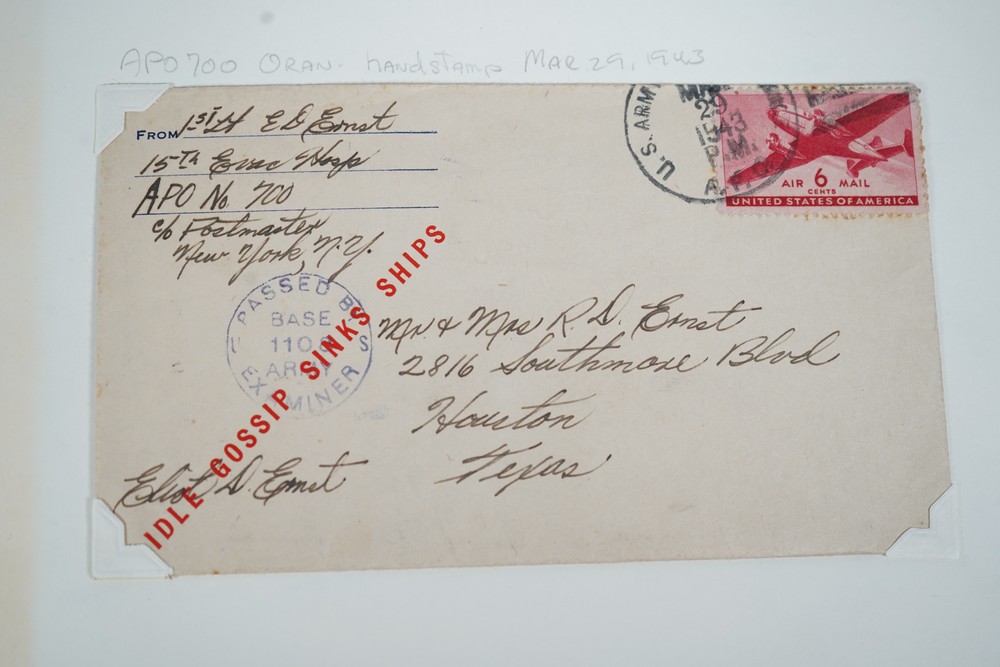 APO 700 ORAN. handstamp MAR 29, 1943
FROM 1st Lt E D Ernst
15TH Evac Hosp
APO No. 700
c/o Postmaster
New York, N.Y.
U.S. ARMY
MAR
29
1943
P.M.
A.P.O.
AIR 6 MAIL
CENTS
UNITED STATES OF AMERICA
IDLE GOSSIP SINKS SHIPS
PASSED BY
BASE
ARMY
EXAMINER
Mr. & Mrs R. D. Ernst
2816 Southmore Blvd
Houston
Texas
Eliot D. Ernst